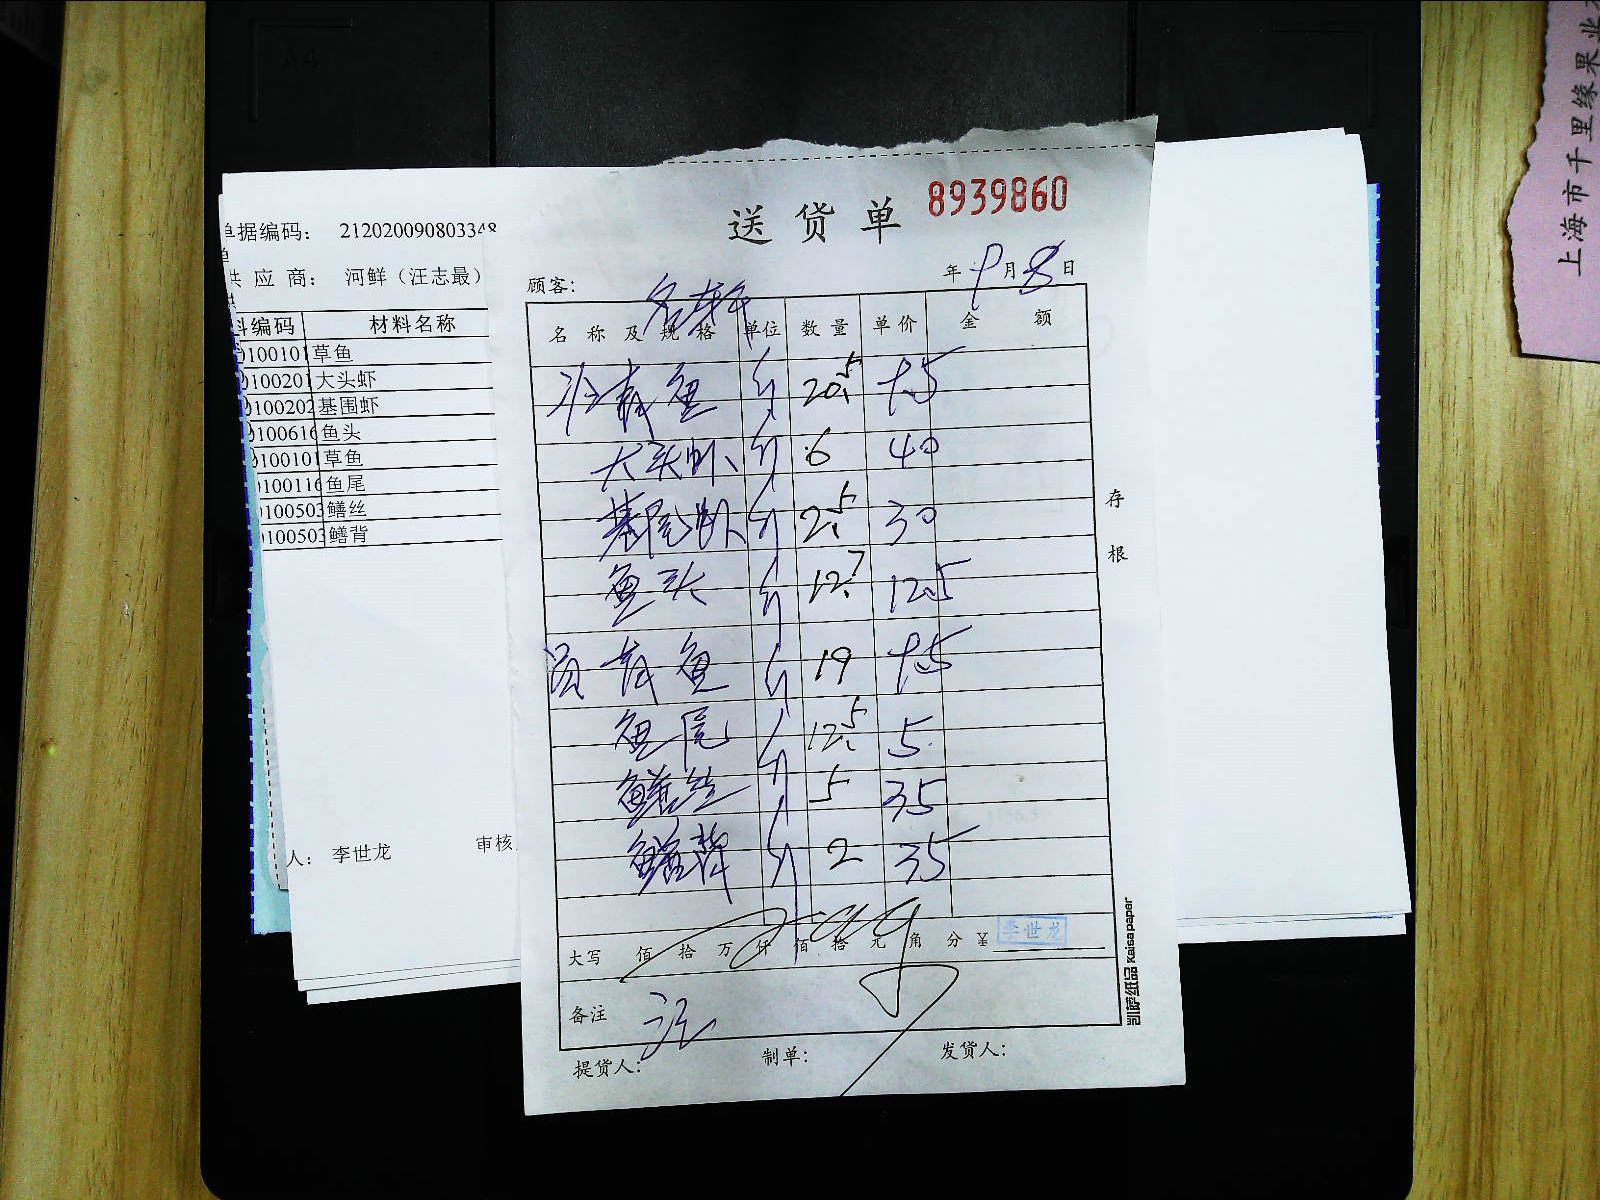 单据编码： 212020090803348
供 应 商： 河鲜（汪志最）
料编码 材料名称
0100101 草鱼
0100201 大头虾
0100202 基围虾
0100616 鱼头
0100101 草鱼
0100116 鱼尾
0100503 鳝丝
0100503 鳝背
人： 李世龙 审核
送货单 8939860
顾客： 名轩
年 9 月 8 日
名 称 及 规 格 单位 数 量 单 价 金 额
青鱼 斤 20.5 9.5
大头虾 斤 6 40
基尾虾 斤 2.5 30
鱼头 斤 12.7 12.5
青鱼 斤 19 9.5
鱼尾 斤 12.5 5
鳝丝 斤 5 35
鳝背 斤 2 35
大写 佰 拾 万 仟 佰 拾 元 角 分 ¥ 李世龙
备注 汪
提货人： 制单： 发货人：
存根
凯萨纸品 Kaisa paper
上海市千里缘果业